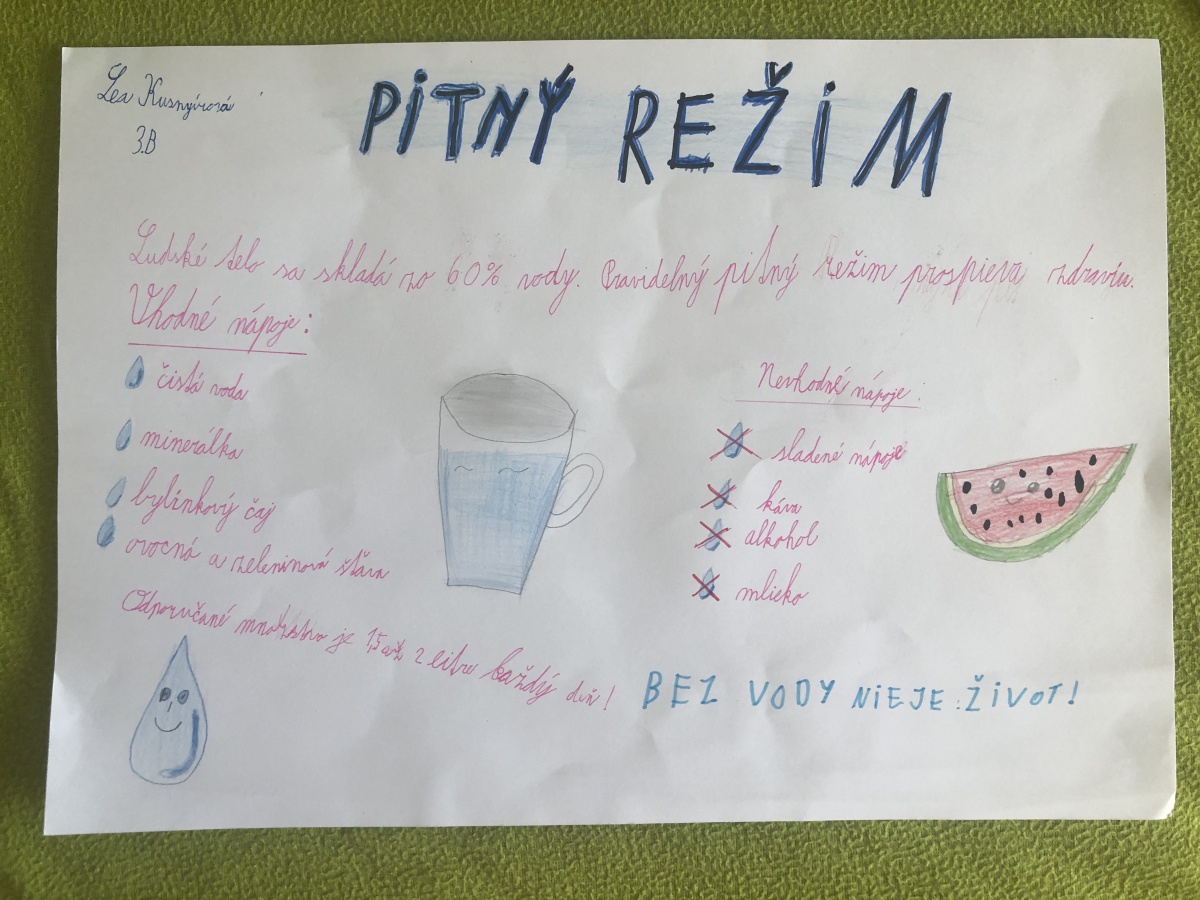 Lea Kusnyírová
3.B
PITNÝ REŽIM
Ludské telo sa skladá zo 60% vody. Pravidelný pitný režim prospieva zdraviu.
Vhodné nápoje:
čistá voda
minerálka
bylinkový čaj
ovocná a zeleninová štava
Odporučané množstvo je 1,5 až 2 litre každý deň!
Nevhodné nápoje:
sladené nápoje
káva
alkohol
mlieko
BEZ VODY NIEJE ŽIVOT!